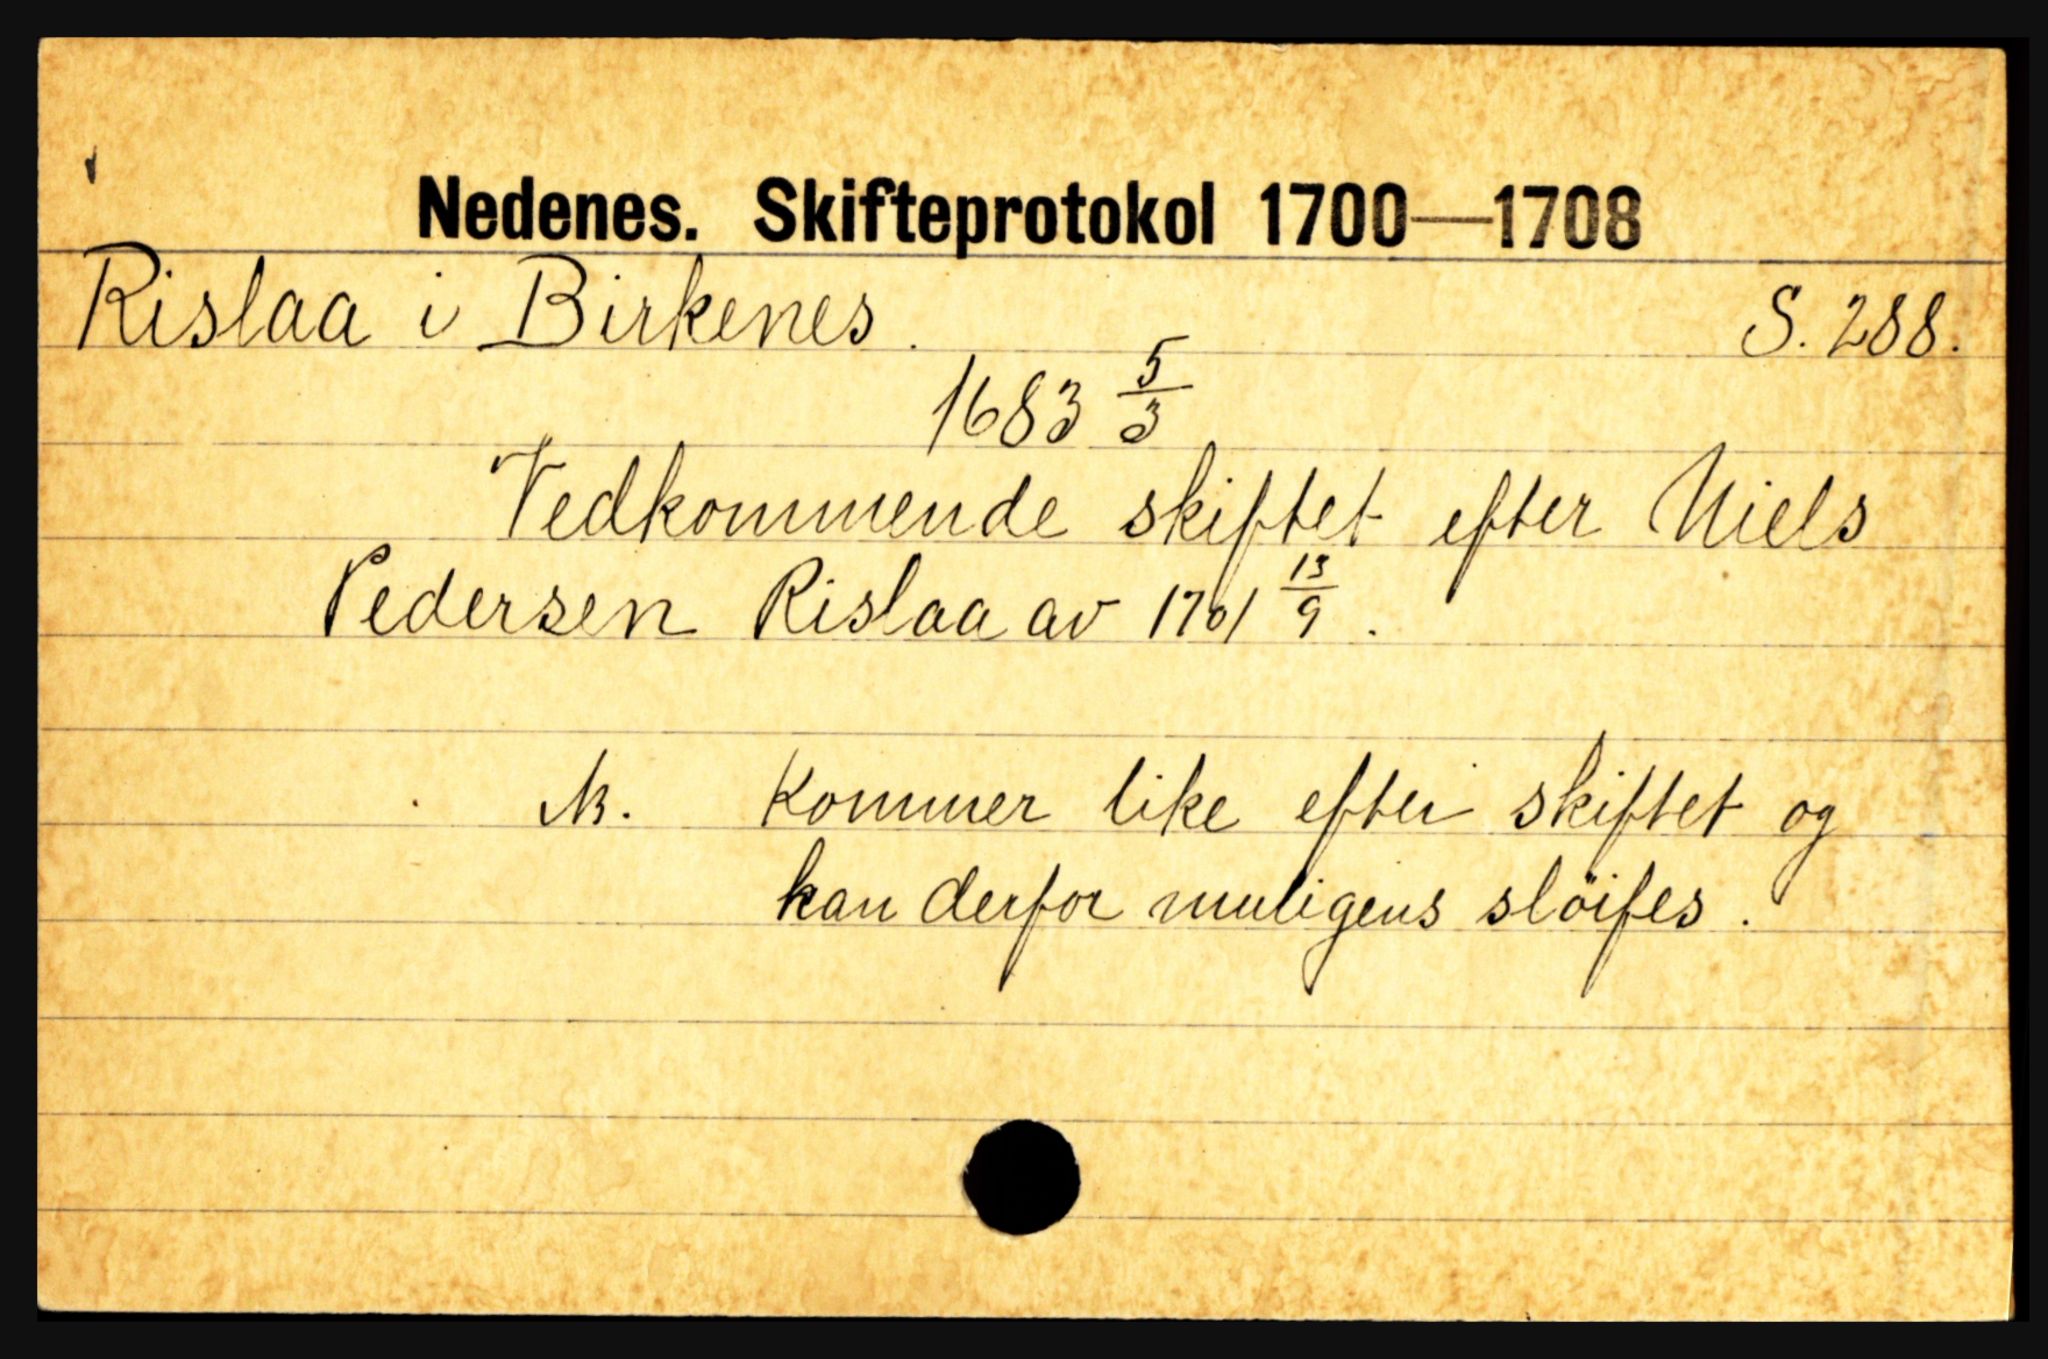 Nedenes. Skifteprotokol 1700—1708
Rislaa i Birkenes. S. 288.
1683 5/3
Vedkommende skiftet efter Niels
Pedersen Rislaa av 1701 13/9.
NB. Kommer like efter skiftet og
kan derfor muligens slöifes.